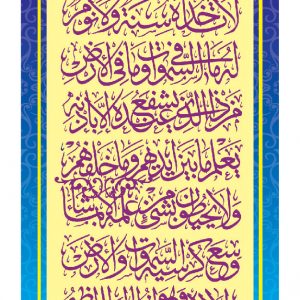 لا تأخذه سنة ولا نوم
له ما في السموت وما في الارض
من ذا الذي يشفع عنده الا باذنه
يعلم ما بين ايديهم وما خلفهم
ولا يحيطون بشيء من علمه الا بما شاء
وسع كرسيه السموت والارض